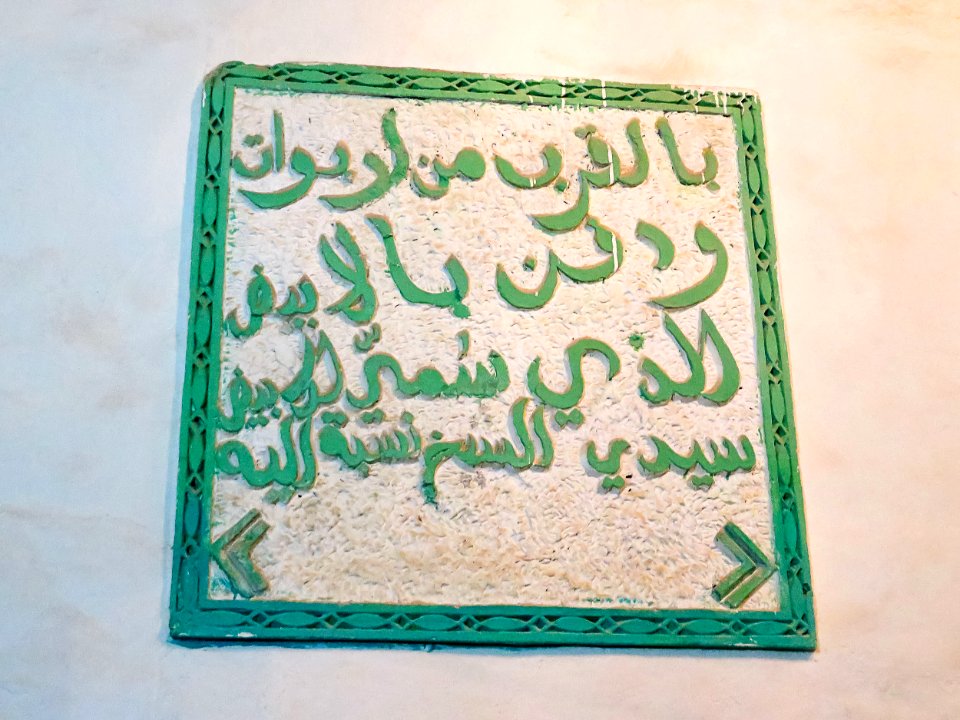 بالقرب من اربوات
ودفن بالابيض
الذي سُميّ الابيض
سيدي الشخ نسبة اليه